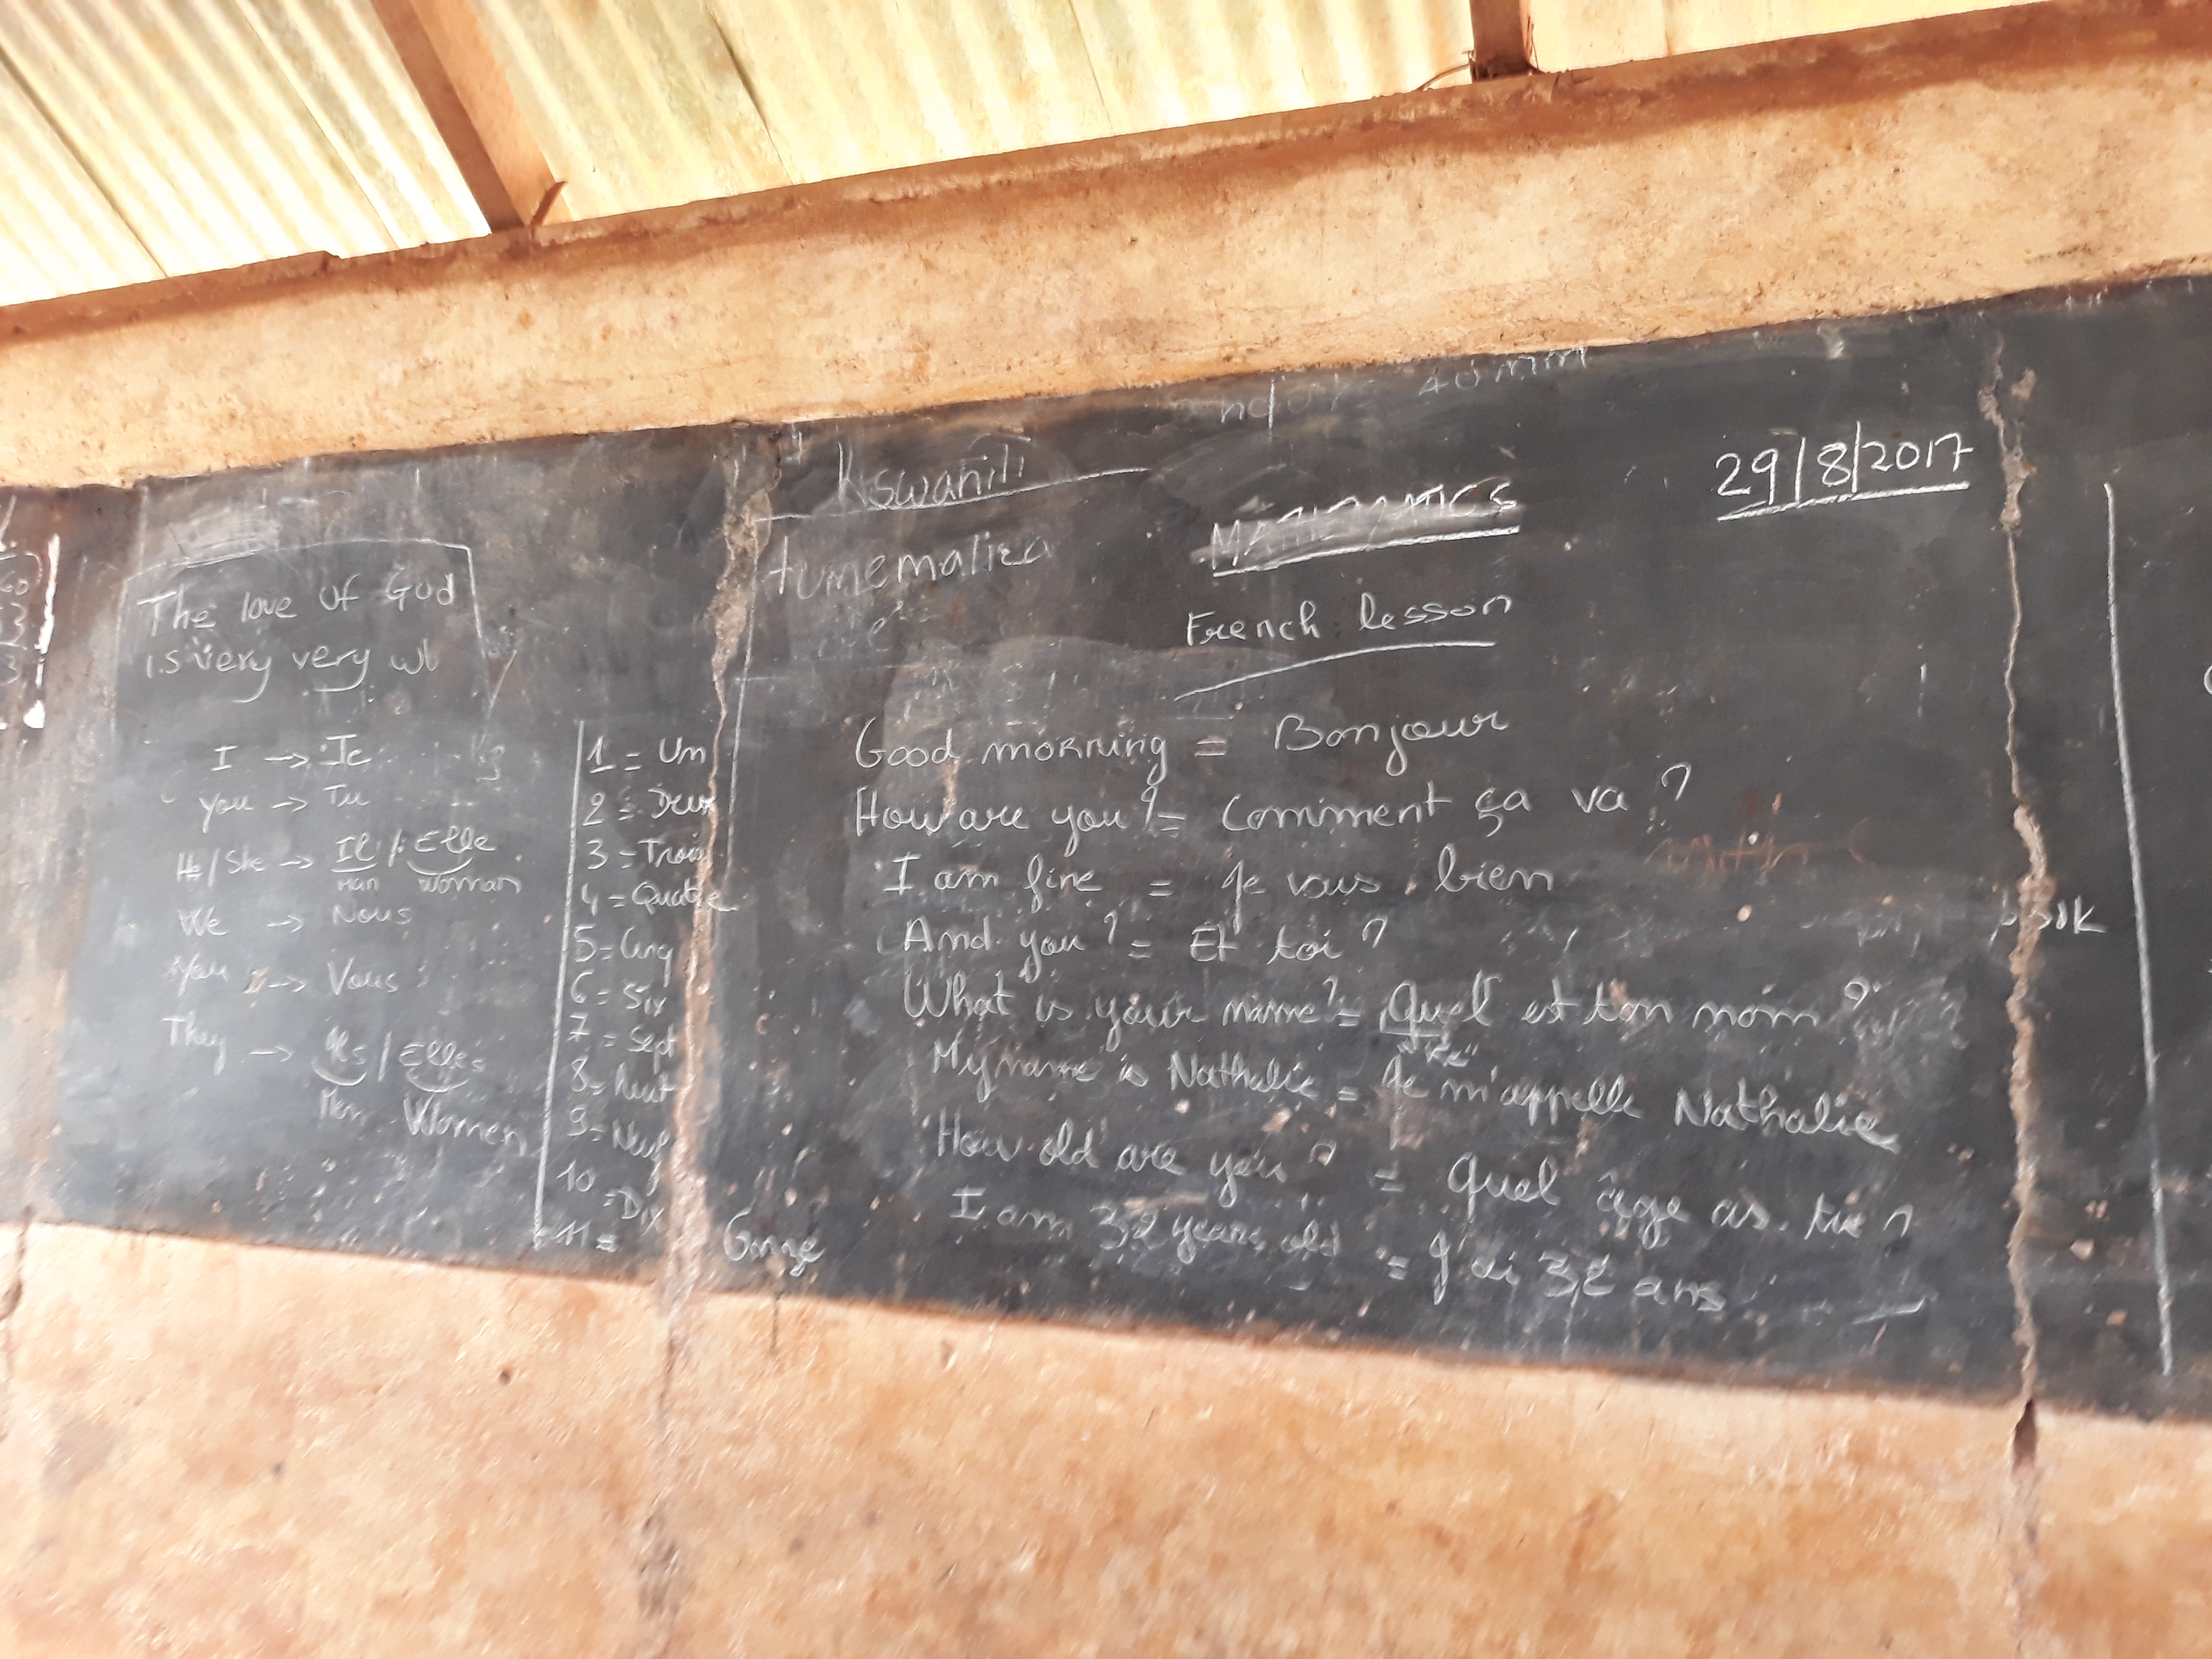 Kswahili
29/8/2017
MATHEMATICS
tumemaliza
French lesson
The love of God
is very very
I → Je
You → Tu
He/She → Il / Elle
Man Woman
We → Nous
You → Vous
They → Ils / Elles
Men Women
1 = Un
2 = Deux
3 = Trois
4 = Quatre
5 = Cinq
6 = Six
7 = Sept
8 = Huit
9 = Neuf
10 = Dix
11 = Onze
Good morning = Bonjour
How are you? = Comment ça va ?
I am fine = Je vais bien
And you? = Et toi ?
What is your name? = Quel est ton nom ?
My name is Nathalie = Je m'appelle Nathalie
How old are you ? = Quel âge as-tu ?
I am 32 years old = J'ai 32 ans